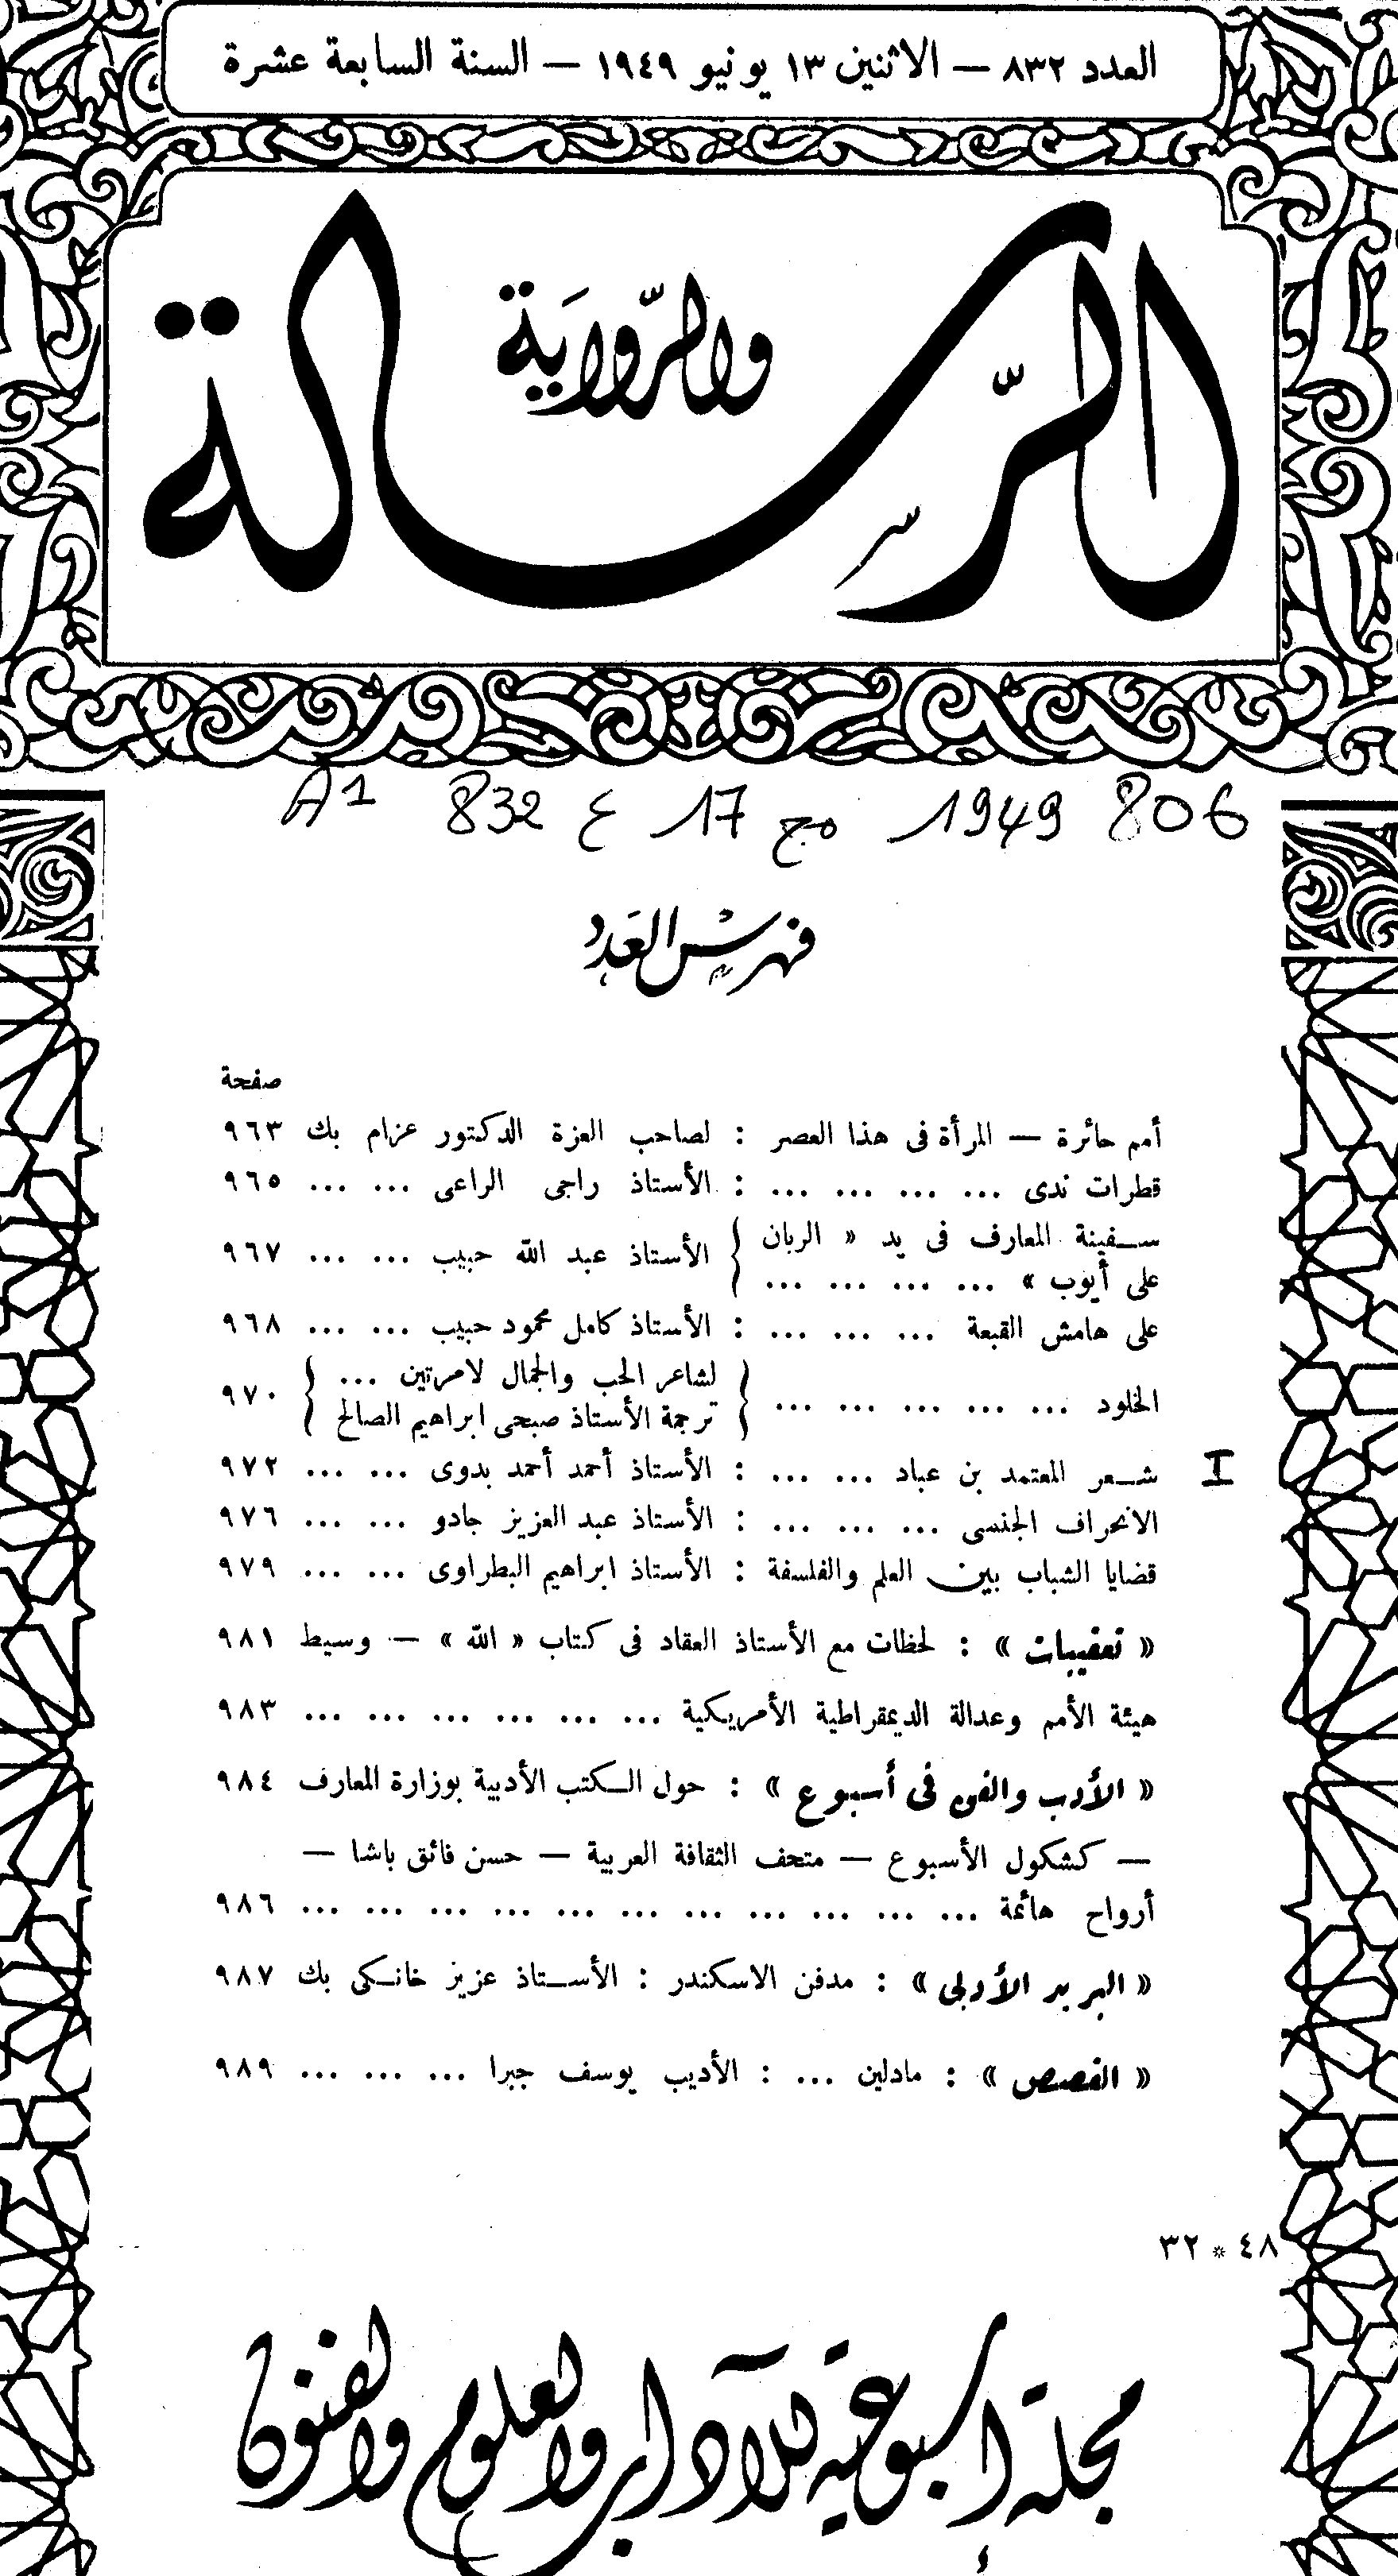 العدد ٨٣٢ — الاثنين ١٣ يونيو ١٩٤٩ — السنة السابعة عشرة
الرسالة
والرواية
A1 832 ع 17 مج 1949 806
فهرس العدد
صفحة
أمم حائرة — المرأة فى هذا العصر : لصاحب العزة الدكتور عزام بك ٩٦٣
قطرات ندى ... ... ... ... : الأستاذ راجى الراعى ... ... ٩٦٥
سفينة المعارف فى يد « الربان
على أيوب » ... ... ... ... } الأستاذ عبد الله حبيب ... ... ٩٦٧
على هامش القبعة ... ... ... : الأستاذ كامل محمود حبيب ... ... ٩٦٨
الخلود ... ... ... ... ... { لشاعر الحب والجمال لامرتين ...
ترجمة الأستاذ صبحى ابراهيم الصالح } ٩٧٠
I شعر المعتمد بن عباد ... ... : الأستاذ أحمد أحمد بدوى ... ... ٩٧٢
الانحراف الجنسى ... ... ... : الأستاذ عبد العزيز جادو ... ... ٩٧٦
قضايا الشباب بين العلم والفلسفة : الأستاذ ابراهيم البطراوى ... ... ٩٧٩
« تعقيبات » : لحظات مع الأستاذ العقاد فى كتاب « الله » — وسيط ٩٨١
هيئة الأمم وعدالة الديمقراطية الأمريكية ... ... ... ... ... ... ٩٨٣
« الأدب والفن فى أسبوع » : حول الكتب الأدبية بوزارة المعارف ٩٨٤
— كشكول الأسبوع — متحف الثقافة العربية — حسن فائق باشا —
أرواح هائمة ... ... ... ... ... ... ... ... ... ... ... ٩٨٦
« البريد الأدبى » : مدفن الاسكندر : الأستاذ عزيز خانكى بك ٩٨٧
« القصص » : مادلين ... : الأديب يوسف جبرا ... ... ... ٩٨٩
٣٢ * ٤٨
مجلة أسبوعية للآداب والعلوم والفنون